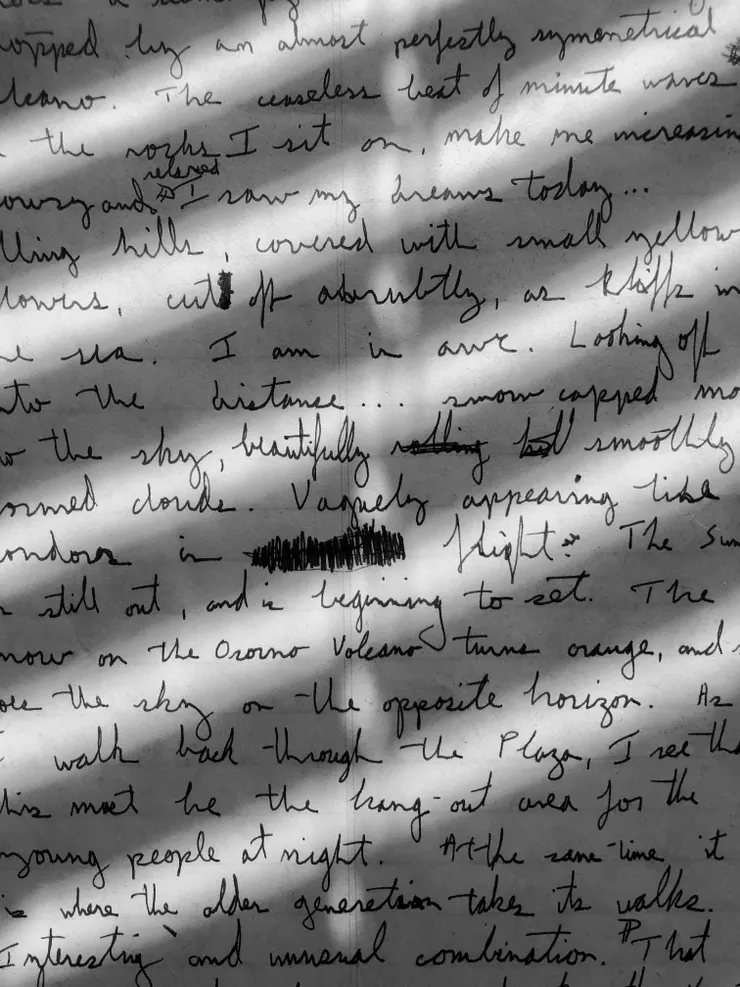 opped by an almost perfectly symmetrical
lcano. The ceaseless beat of minute waves
the rocks I sit on, make me increasin
relaxed
owsy and I saw my dreams today...
lling hills, covered with small yellow
lowers, cut off abrubtly, as kliffs in
e sea. I am in awe. Looking off
nto the distance... snow capped mo
w the sky, beautifully rolling smoothly
ormed clouds. Vaguely appearing like
ondors in flight. The Sun
s still out, and is beginning to set. The
now on the Osorno Volcano turns orange, and s
oes the sky on the opposite horizon. As
I walk back through the Plaza, I see tha
this must be the hang-out area for the
young people at night. At the same-time it
is where the older generation takes its walks.
Interesting and unusual combination. That